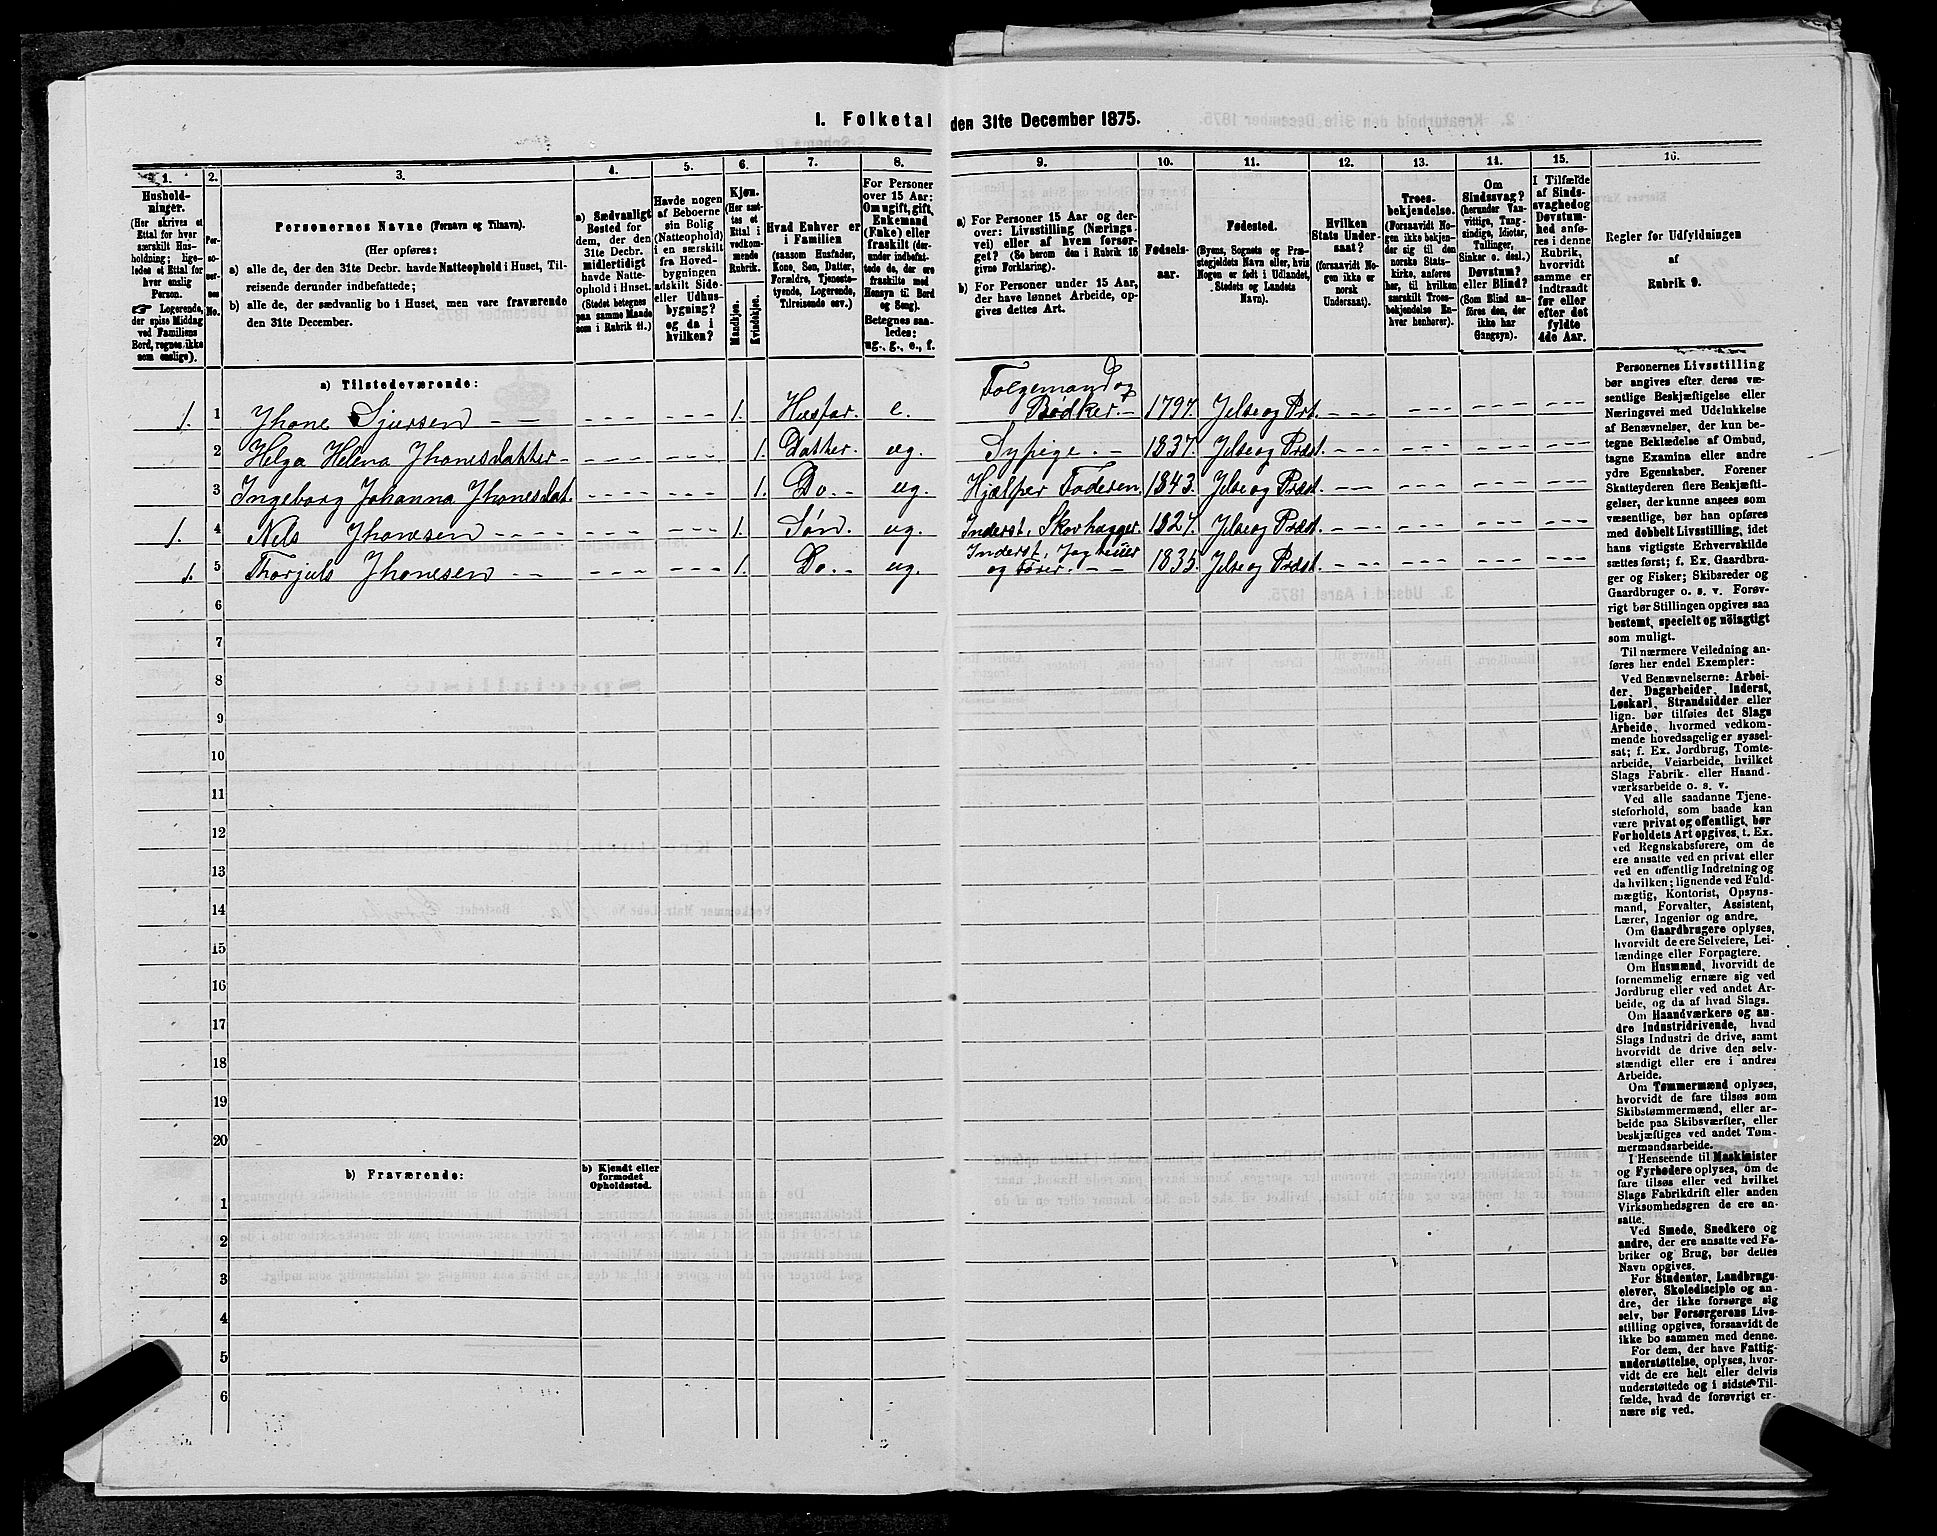 I. Folketal den 31te December 1875.
1. 2. 3. 4. 5. 6. 7. 8. 9. 10. 11. 12. 13. 14. 15. 16.
Hushold-
ninger.
(Her skrives et
Ettal for hver
særskilt Hus-
holdning; lige-
ledes et Ettal for
hver enslig
Person.
☞ Logerende,
der spise Middag
ved Familiens
Bord, regnes ikke
som enslige).
Per-
so-
ner-
nes
No.
Personernes Navne (Fornavn og Tilnavn).
(Her opføres:
a) alle de, der den 31te Decbr. havde Natteophold i Huset, Til-
reisende derunder indbefattede;
b) alle de, der sædvanlig bo i Huset, men vare fraværende
den 31te December.
a) Sædvanligt
Bosted for
dem, der den
31te Decbr.
midlertidigt
havde Natte-
ophold i Huset.
(Stedet betegnes
paa samme Maade
som i Rubrik 11.)
Havde nogen
af Beboerne
sin Bolig
(Natteophold)
i en særskilt
fra Hoved-
bygningen
adskilt Side-
eller Udhus-
bygning?
og da i
hvilken?
Kjøn.
(Her sæt-
tes et
Ettal i
vedkom-
mende
Rubrik.
Mandkjøn.
Kvindekjøn.
Hvad Enhver er
i Familien
(saasom Husfader,
Kone, Søn, Datter,
Forældre, Tjeneste-
tyende, Logerende,
Tilreisende osv.)
For Personer
over 15 Aar:
Om ugift, gift,
Enkemand
(Enke) eller
fraskilt (der-
under indbefat-
tede de, der ere
fraskilte med
Hensyn til Bord
og Seng).
Betegnes saa-
ledes:
ug., g., e., f.
a) For Personer 15 Aar og der-
over: Livsstilling (Nærings-
vei) eller af hvem forsør-
get? (Se herom den i Rubrik 16
givne Forklaring).
b) For Personer under 15 Aar,
der have lønnet Arbeide, op-
gives dettes Art.
Fødsels-
aar.
Fødested.
(Byens, Sognets og Præ-
stegjeldets Navn eller, hvis
Nogen er født i Udlandet,
Stedets og Landets
Navn).
Hvilken
Stats Under-
saat?
(forsaavidt No-
gen ikke er
norsk
Undersaat).
Troes-
bekjendelse.
(Forsaavidt No-
gen ikke bekjen-
der sig til den
norske Stats-
kirke, anføres
her, til hvilken
særskilt Troes-
bekjendelse En-
hver henhører).
Om
Sindssvag?
(herunder Van-
vittige, Tung-
sindige, Idioter,
Tullinger,
Sinker o. desl.)
Døvstum?
eller Blind?
(Som Blind an-
føres den, der
ikke har
Gangsyn).
I Tilfælde
af Sinds-
svaghed og
Døvstum-
hed anfø-
res i denne
Rubrik,
hvorvidt
samme er
indtraadt
før eller
efter det
fyldte
4de Aar.
Regler for Udfyldningen
af
Rubrik 9.
a) Tilstedeværende:
1. 1 Jhone Sjursen 1. Husfar. e. Folgemand og Bødker. 1797. Jelse og Prt.
2 Helga Helena Jhonesdatter 1. Datter. ug. Sypige. 1837. Jelse og Præst.
3 Ingeborg Johanna Jhonesdat. 1. Do. ug. Hjælper Faderen 1843. Jelse og Præst.
1. 4 Nils Jhonesen 1. Søn. ug. Inderst, Skovhugger. 1827. Jelse og Præst.
1. 5 Thorjuls Jhonesen 1. Do. ug. Inderst, 1835. Jelse og Præst.
6
7
8
9
10
11
12
13
14
15
16
17
18
19
20
b) Fraværende:
b) Kjendt eller
formodet
Opholdssted.
1
2
3
4
5
6
Personernes Livsstilling
bør angives efter deres væ-
sentlige Beskjæftigelse eller
Næringsvei med Udelukkelse
af Benævnelser, der kun be-
tegne Beklædelse af Ombud,
tagne Examina eller andre
ydre Egenskaber. Forener
Skatteyderen flere Beskjæfti-
gelser, der kunne ansees som
væsentlige, bør han opføres
med dobbelt Livsstilling, idet
hans vigtigste Erhvervskilde
sættes først; f. Ex. Gaardbru-
ger og Fisker; Skibsreder og
Gaardbruger o. s. v. Forøv-
rigt bør Stillingen opgives saa
bestemt, specielt og nöiagtigt
som muligt.
Til nærmere Veiledning an-
føres her endel Exempler:
Ved Benævnelserne: Arbei-
der, Dagarbeider, Inderst,
Løskarl, Strandsidder eller
lign. bør tilføies det Slags
Arbeide, hvormed vedkom-
mende hovedsagelig er syssel-
sat; f. Ex. Jordbrug, Tomte-
arbeide, Veiarbeide, hvilket
Slags Fabrik- eller Haand-
værksarbeide o. s. v.
Ved alle saadanne Tjene-
steforhold, som baade kan
være privat og offentligt, bør
Forholdets Art opgives, t. Ex.
ved Regnskabsførere, om de
ere ansatte ved en privat eller
ved en offentlig Indretning og
da hvilken; lignende ved Fuld-
mægtig, Kontorist, Opsyns-
mand, Forvalter, Assistent,
Lærer, Ingeniør og andre.
Om Gaardbrugere oplyses,
hvorvidt de ere Selveiere, Lei-
lændinge eller Forpagtere.
Om Husmænd, hvorvidt de
fornemmelig ernære sig ved
Jordbrug eller ved andet Ar-
beide, og da af hvad Slags.
Om Haandværkere og an-
dre Industridrivende, hvad
Slags Industri de drive, samt
hvorvidt de drive den selv-
stændigt eller ere i andres
Arbeide.
Om Tømmermænd oplyses,
hvorvidt de fare tilsøs som
Skibstømmermænd, eller ar-
beide paa Skibsværfter, eller
beskjæftiges ved andet Tøm-
mermandsarbeide.
I Henseende til Maskinister
og Fyrbødere oplyses, om de
fare tilsøs eller ved hvilket
Slags Fabrikdrift eller anden
Virksomhedsgren de ere an-
satte.
Ved Smede, Snedkere og
andre, der ere ansatte ved Fa-
briker og Brug, bør dettes
Navn opgives.
For Studenter, Landbrugs-
elever, Skoledisciple og an-
dre, der ikke forsørge sig
selv, bør Forsørgerens Livs-
stilling opgives, forsaavidt de
ikke bo sammen med denne.
For dem, der have Fattig-
understøttelse, oplyses, hvor-
vidt de ere helt eller delvis
understøttede og i sidste Til-
fælde, hvad de forøvrigt er-
nære sig ved.